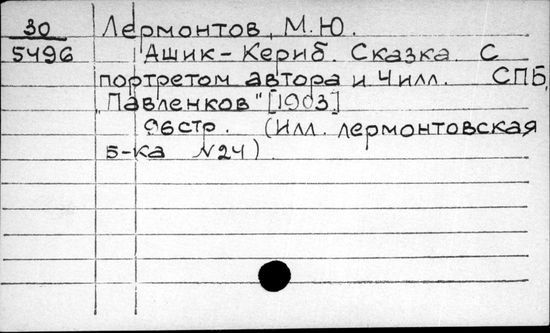 30 Лермонтов, М.Ю.
5496 Ашик-Кериб. Сказка. С
портретом автора и 4илл. СПБ,
"Павленков" [1903]
96стр. (Илл. лермонтовская
б-ка N24).